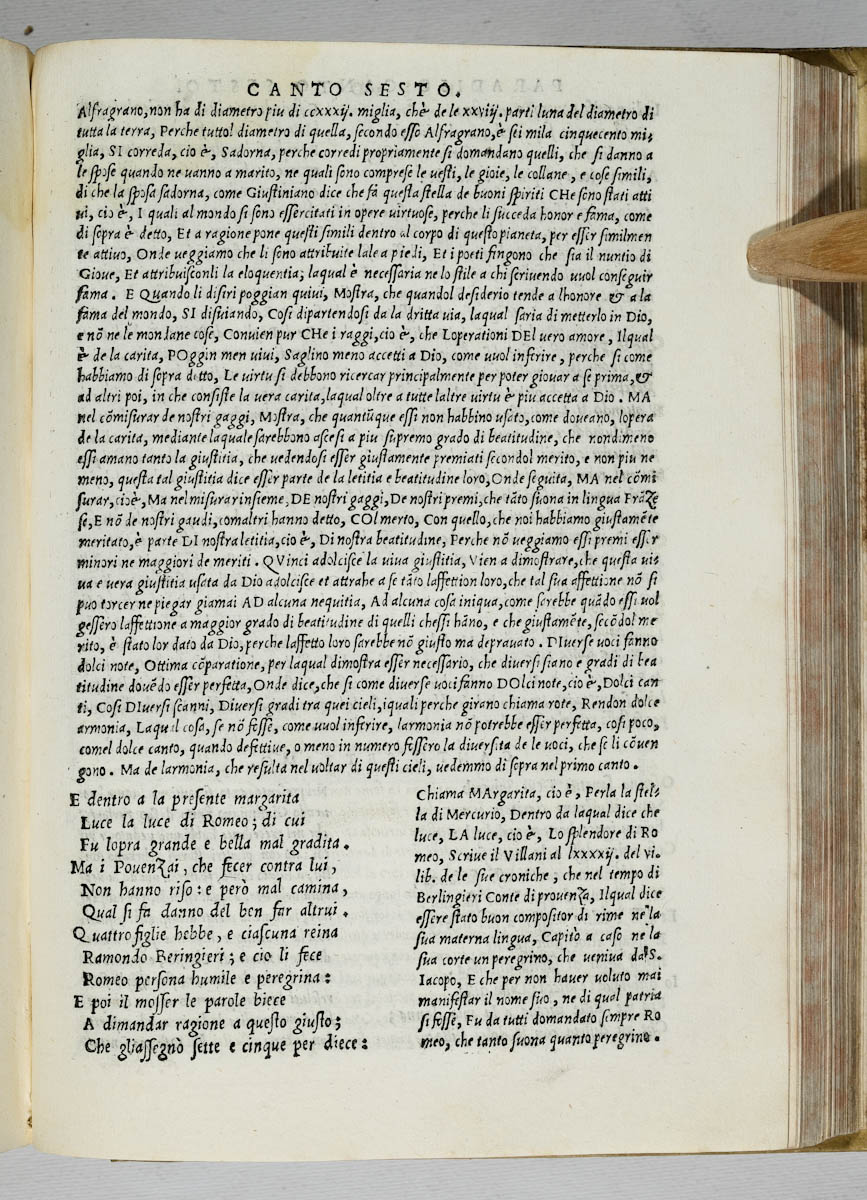 CANTO SESTO.
Alfragrano, non ha di diametro piu di ccxxxij. miglia, chè de le xxviij. parti luna del diametro di
tutta la terra, Perche tuttol diametro di quella, secondo esso Alfragrano, è sei mila cinquecento mi-
glia, SI correda, cio è, Sadorna, perche corredi propriamente si domandano quelli, che si danno a
le spose quando ne vanno a marito, ne quali sono comprese le vesti, le gioie, le collane, e cose simili,
di che la sposa sadorna, come Giustiniano dice che fa questa stella de buoni spiriti CHe sono stati atti
ui, cio è, I quali al mondo si sono essercitati in opere virtuose, perche li succeda honor e fama, come
di sopra è detto, Et a ragione pone questi simili dentro al corpo di questo pianeta, per esser similmen
te attiuo, Onde veggiamo che li sono attribuite lale a piedi, Et i poeti fingono che sia il nuntio di
Gioue, Et attribuisconli la eloquentia; laqual è necessaria ne lo stile a chi scriuendo vuol conseguir
fama. E Quando li disiri poggian quiui, Mostra, che quandol desiderio tende a lhonore & a la
fama del mondo, SI disuiando, Cosi dipartendosi da la dritta via, laqual saria di metterlo in Dio,
e nõ ne le mondane cose, Conuien pur CHe i raggi, cio è, che Loperationi DEl vero amore, Ilqual
è de la carita, POggin men viui, Saglino meno accetti a Dio, come vuol inferire, perche si come
habbiamo di sopra detto, Le virtu si debbono ricercar principalmente per poter giouar a se prima, &
ad altri poi, in che consiste la vera carita, laqual oltre a tutte laltre virtu è piu accetta a Dio. MA
nel cõmisurar de nostri gaggi, Mostra, che quantũque essi non habbino usato, come doueano, lopera
de la carita, mediante laquale sarebbono ascesi a piu supremo grado di beatitudine, che nondimeno
essi amano tanto la giustitia, che vedendosi esser giustamente premiati secondol merito, e non piu ne
meno, questa tal giustitia dice esser parte de la letitia e beatitudine loro, Onde seguita, MA nel cõmi
surar, cio è, Ma nel misurar insieme, DE nostri gaggi, De nostri premi, che tãto suona in lingua Frãze
se, E nõ de nostri gaudi, comaltri hanno detto, COl merto, Con quello, che noi habbiamo giustamẽte
meritato, è parte DI nostra letitia, cio è, Di nostra beatitudine, Perche nõ veggiamo essi premi esser
minori ne maggiori de meriti. QVinci adolcisce la viua giustitia, Vien a dimostrare, che questa vi-
ua e vera giustitia usata da Dio adolcisce et attrahe a se tãto laffettion loro, che tal sua affettione nõ si
puo torcer ne piegar giamai AD alcuna nequitia, Ad alcuna cosa iniqua, come serebbe quãdo essi vol
gessero laffettione a maggior grado di beatitudine di quelli chessi hãno, e che giustamẽte, secõdol me
rito, è stato lor dato da Dio, perche laffetto loro sarebbe nõ giusto ma deprauato. DIuerse voci fanno
dolci note, Ottima cõparatione, per laqual dimostra esser necessario, che diuersi siano e gradi di bea
titudine douẽdo esser perfetta, Onde dice, che si come diuerse voci fanno DOlci note, cio è, Dolci can
ti, Cosi DIuersi scanni, Diuersi gradi tra quei cieli, iquali perche girano chiama rote, Rendon dolce
armonia, Laqual cosa, se nõ fesse, come vuol inferire, larmonia nõ potrebbe esser perfetta, cosi poco,
comel dolce canto, quando defettiue, o meno in numero fessero la diuersita de le voci, che se li cõuen
gono. Ma de larmonia, che resulta nel voltar di questi cieli, vedemmo di sopra nel primo canto.
E dentro a la presente margarita
Luce la luce di Romeo; di cui
Fu lopra grande e bella mal gradita.
Ma i Pouenzai, che fecer contra lui,
Non hanno riso: e però mal camina,
Qual si fa danno del ben far altrui.
Quattro figlie hebbe, e ciascuna reina
Ramondo Beringieri; e cio li fece
Romeo persona humile e peregrina:
E poi il mosser le parole biece
A dimandar ragione a questo giusto;
Che gliassegnò sette e cinque per diece:
Chiama MArgarita, cio è, Perla la stel-
la di Mercurio, Dentro da laqual dice che
luce, LA luce, cio è, Lo splendore di Ro
meo, Scriue il Villani al lxxxxij. del vi.
lib. de le sue croniche, che nel tempo di
Berlingieri Conte di prouenza, Ilqual dice
essere stato buon compositor di rime ne la
sua materna lingua, Capitò a caso ne la
sua corte un peregrino, che veniua da S.
Iacopo, E che per non hauer voluto mai
manifestar il nome suo, ne di qual patria
si fesse, Fu da tutti domandato sempre Ro
meo, che tanto suona quanto peregrino.